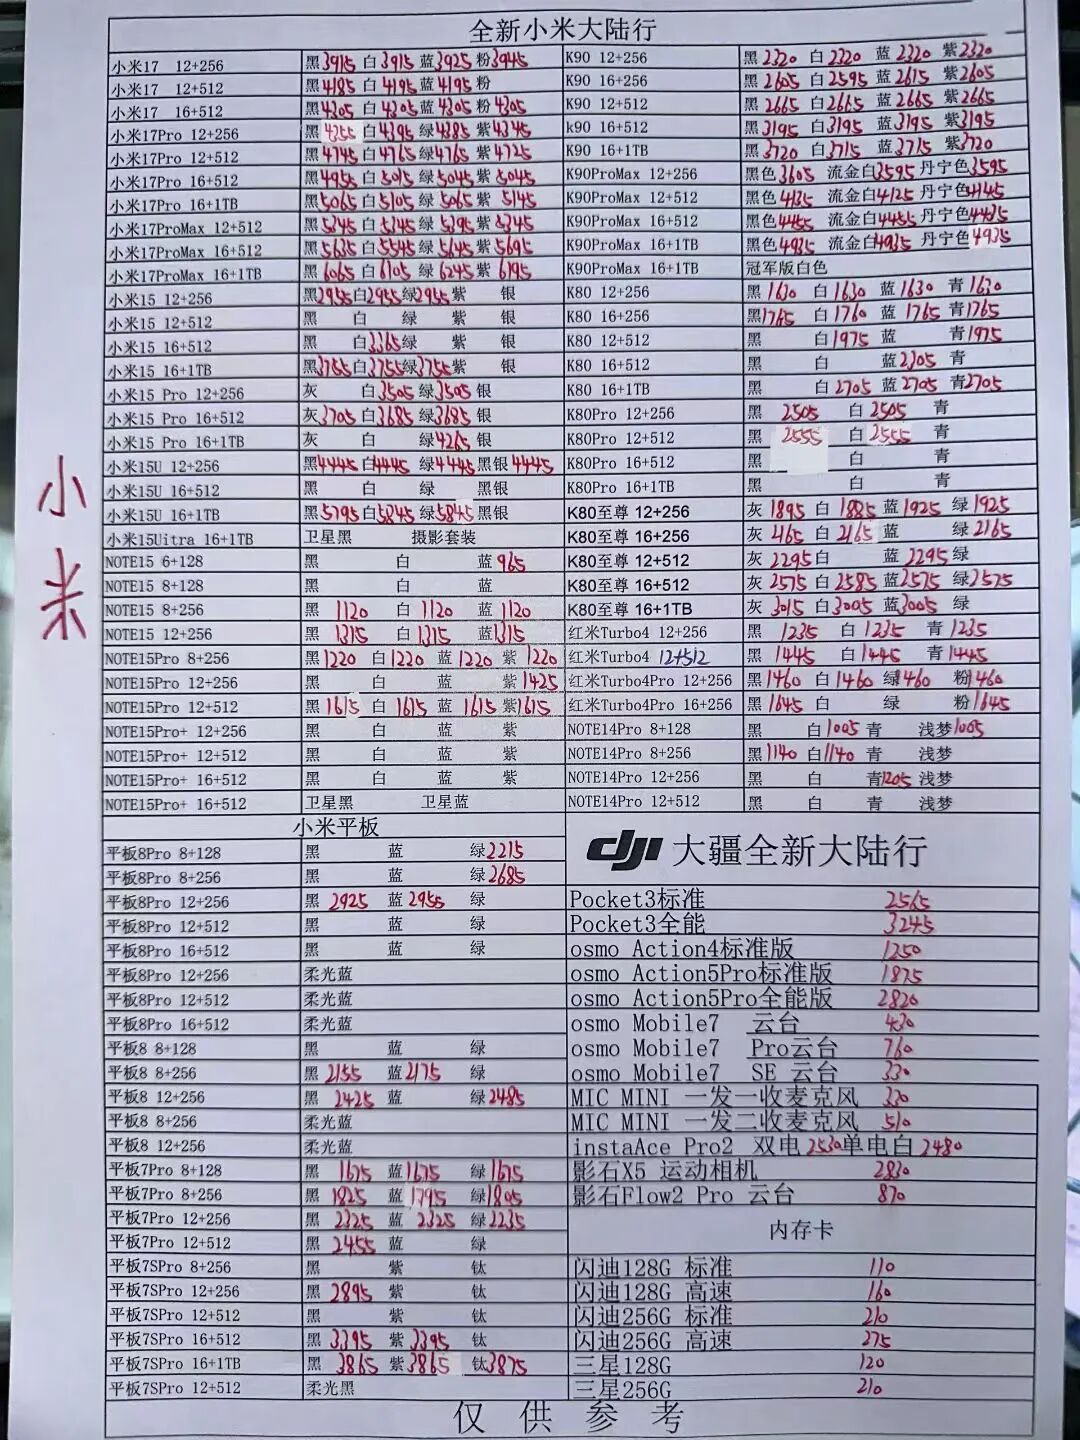 全新小米大陆行
小米17 12+256 黑3915 白3915 蓝3925 粉3945 K90 12+256 黑2320 白2220 蓝2320 紫2320
小米17 12+512 黑4185 白4195 蓝4195 粉 K90 16+256 黑2605 白2595 蓝2615 紫2605
小米17 16+512 黑4205 白4205 蓝4205 粉4205 K90 12+512 黑2665 白2665 蓝2665 紫2665
小米17Pro 12+256 黑4255 白4395 绿4385 紫4345 k90 16+512 黑3195 白3195 蓝3195 紫3195
小米17Pro 12+512 黑4745 白4765 绿4765 紫4725 K90 16+1TB 黑3720 白3715 蓝3715 紫3720
小米17Pro 16+512 黑4955 白5015 绿5045 紫5045 K90ProMax 12+256 黑色3605 流金白3595 丹宁色3595
小米17Pro 16+1TB 黑5065 白5105 绿5065 紫5145 K90ProMax 12+512 黑色4135 流金白4125 丹宁色4145
小米17ProMax 12+512 黑5345 白5345 绿5395 紫5345 K90ProMax 16+512 黑色4455 流金白4455 丹宁色4435
小米17ProMax 16+512 黑5635 白5545 绿5645 紫5695 K90ProMax 16+1TB 黑色4935 流金白4935 丹宁色4935
小米17ProMax 16+1TB 黑6065 白6105 绿6245 紫6195 K90ProMax 16+1TB 冠军版白色
小米15 12+256 黑2955 白2955 绿2955 紫 银 K80 12+256 黑1630 白1630 蓝1630 青1630
小米15 12+512 黑 白 绿 紫 银 K80 16+256 黑1765 白1760 蓝1765 青1765
小米15 16+512 黑 白3365 绿 紫 银 K80 12+512 黑 白1975 蓝 青1975
小米15 16+1TB 黑3755 白3755 绿3755 紫 银 K80 16+512 黑 白 蓝2305 青
小米15 Pro 12+256 灰 白3505 绿3505 银 K80 16+1TB 黑 白2705 蓝2705 青2705
小米15 Pro 16+512 灰3705 白3685 绿3685 银 K80Pro 12+256 黑2505 白2505 青
小米15 Pro 16+1TB 灰 白 绿4265 银 K80Pro 12+512 黑2555 白2555 青
小米15U 12+256 黑4445 白4445 绿4445 黑银4445 K80Pro 16+512 黑 白 青
小米15U 16+512 黑 白 绿 黑银 K80Pro 16+1TB 黑 白 青
小米15U 16+1TB 黑5795 白5845 绿5845 黑银 K80至尊 12+256 灰1895 白1885 蓝1925 绿1925
小米15Uitra 16+1TB 卫星黑 摄影套装 K80至尊 16+256 灰2165 白2165 蓝 绿2165
NOTE15 6+128 黑 白 蓝965 K80至尊 12+512 灰2295 白 蓝2295 绿
NOTE15 8+128 黑 白 蓝 K80至尊 16+512 灰2575 白2585 蓝2575 绿2575
NOTE15 8+256 黑1120 白1120 蓝1120 K80至尊 16+1TB 灰3015 白3005 蓝3005 绿
NOTE15 12+256 黑1315 白1315 蓝1315 红米Turbo4 12+256 黑1235 白1235 青1235
NOTE15Pro 8+256 黑1220 白1220 蓝1220 紫1220 红米Turbo4 12+512 黑1445 白1445 青1445
NOTE15Pro 12+256 黑 白 蓝 紫1425 红米Turbo4Pro 12+256 黑1460 白1460 绿1460 粉1460
NOTE15Pro 12+512 黑1615 白1615 蓝1615 紫1615 红米Turbo4Pro 16+256 黑1645 白 绿 粉1645
NOTE15Pro+ 12+256 黑 白 蓝 紫 NOTE14Pro 8+128 黑 白1005 青 浅梦1005
NOTE15Pro+ 12+512 黑 白 蓝 紫 NOTE14Pro 8+256 黑1140 白1140 青 浅梦
NOTE15Pro+ 16+512 黑 白 蓝 紫 NOTE14Pro 12+256 黑 白 青1205 浅梦
NOTE15Pro+ 16+512 卫星黑 卫星蓝 NOTE14Pro 12+512 黑 白 青 浅梦
小米
小米平板
dji 大疆全新大陆行
平板8Pro 8+128 黑 蓝 绿2215
平板8Pro 8+256 黑 蓝 绿2685
平板8Pro 12+256 黑2925 蓝2955 绿 Pocket3标准 2565
平板8Pro 12+512 黑 蓝 绿 Pocket3全能 3245
平板8Pro 16+512 黑 蓝 绿 osmo Action4标准版 1250
平板8Pro 12+256 柔光蓝 osmo Action5Pro标准版 1875
平板8Pro 12+512 柔光蓝 osmo Action5Pro全能版 2820
平板8Pro 16+512 柔光蓝 osmo Mobile7 云台 430
平板8 8+128 黑 蓝 绿 osmo Mobile7 Pro云台 760
平板8 8+256 黑2155 蓝2175 绿 osmo Mobile7 SE 云台 330
平板8 12+256 黑2425 蓝 绿2485 MIC MINI 一发一收麦克风 330
平板8 8+256 柔光蓝 MIC MINI 一发二收麦克风 510
平板8 12+256 柔光蓝 instaAce Pro2 双电2530单电白2480
平板7Pro 8+128 黑1675 蓝1675 绿1675 影石X5 运动相机 2830
平板7Pro 8+256 黑1825 蓝1795 绿1805 影石Flow2 Pro 云台 870
平板7Pro 12+256 黑2325 蓝2325 绿2235
平板7Pro 12+512 黑2455 蓝 绿
内存卡
平板7SPro 8+256 黑 紫 钛 闪迪128G 标准 110
平板7SPro 12+256 黑2895 紫 钛 闪迪128G 高速 160
平板7SPro 12+512 黑 紫 钛 闪迪256G 标准 210
平板7SPro 16+512 黑3395 紫3395 钛 闪迪256G 高速 275
平板7SPro 16+1TB 黑3865 紫3865 钛3875 三星128G 120
平板7SPro 12+512 柔光黑 三星256G 210
仅供参考